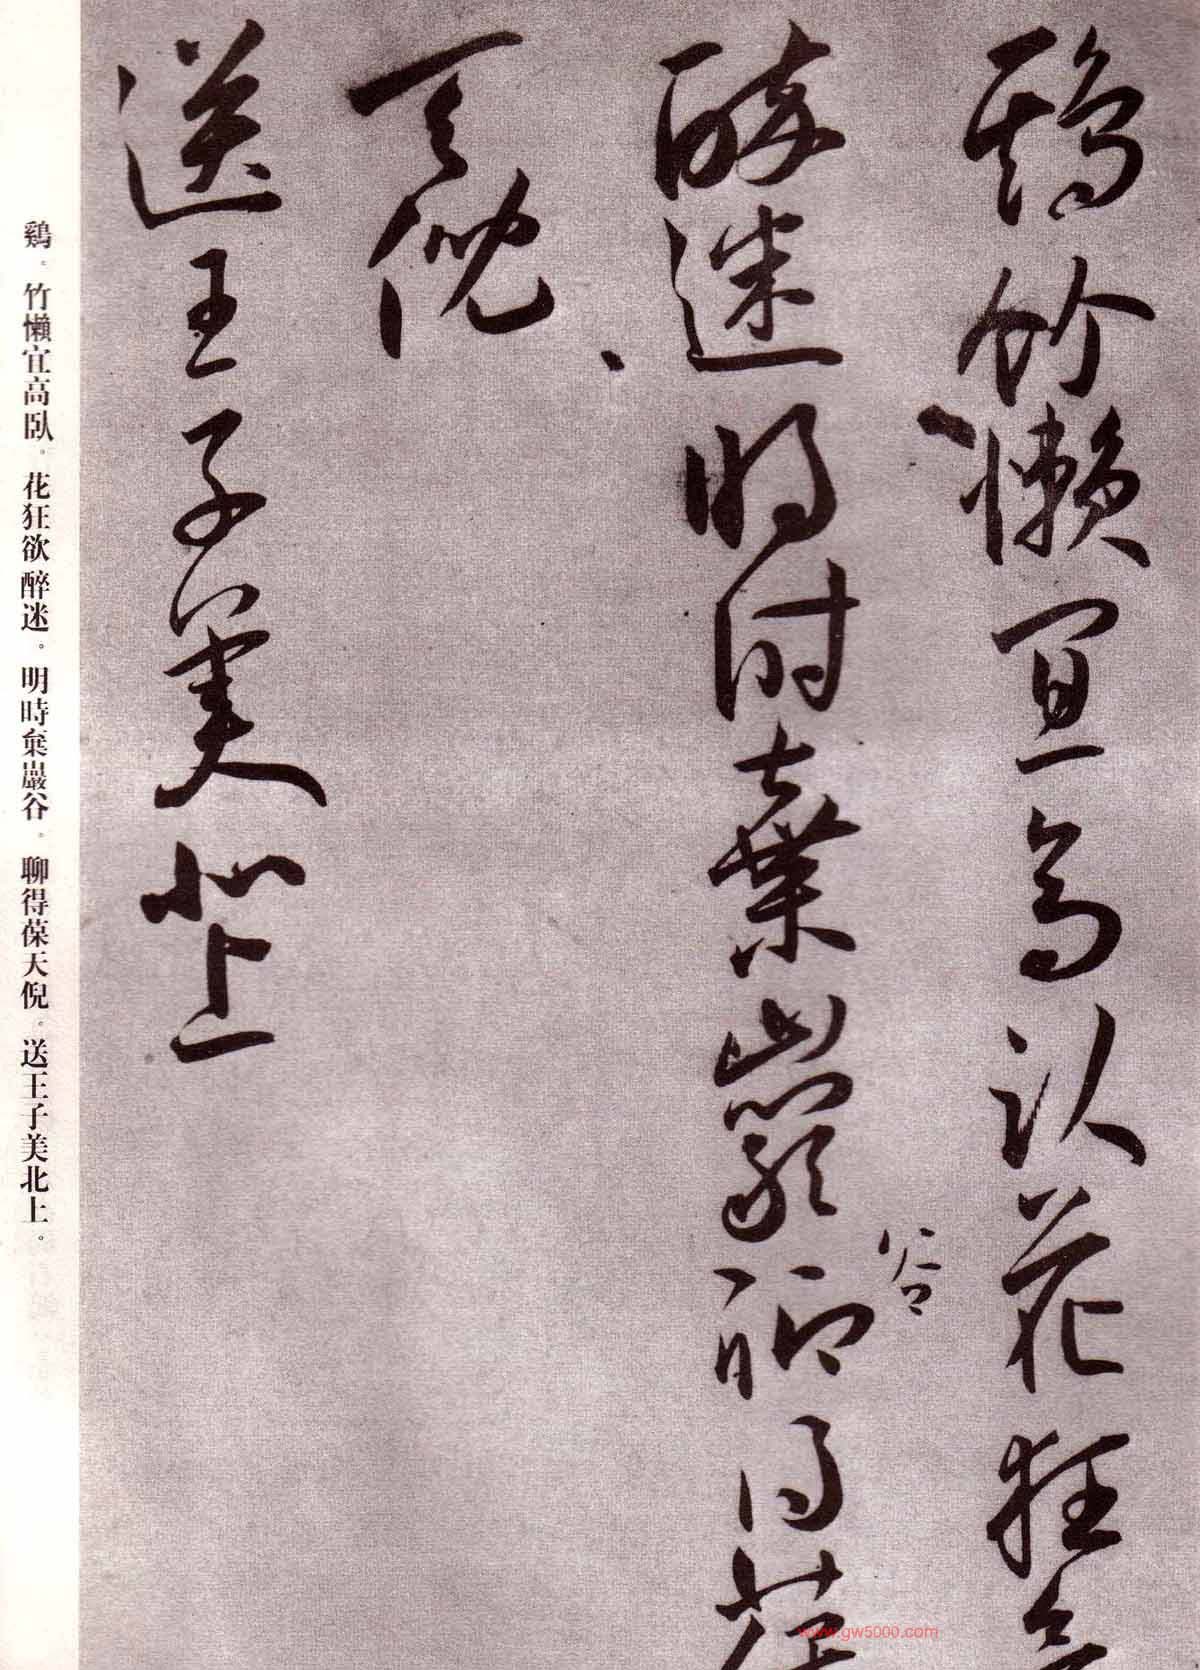 鷄竹懶宜高臥花狂欲
醉迷明時棄巖聊得葆
谷
天倪
送王子美北上
鷄。竹懶宜高臥。花狂欲醉迷。明時棄巖谷。聊得葆天倪。送王子美北上。
www.gw5000.com